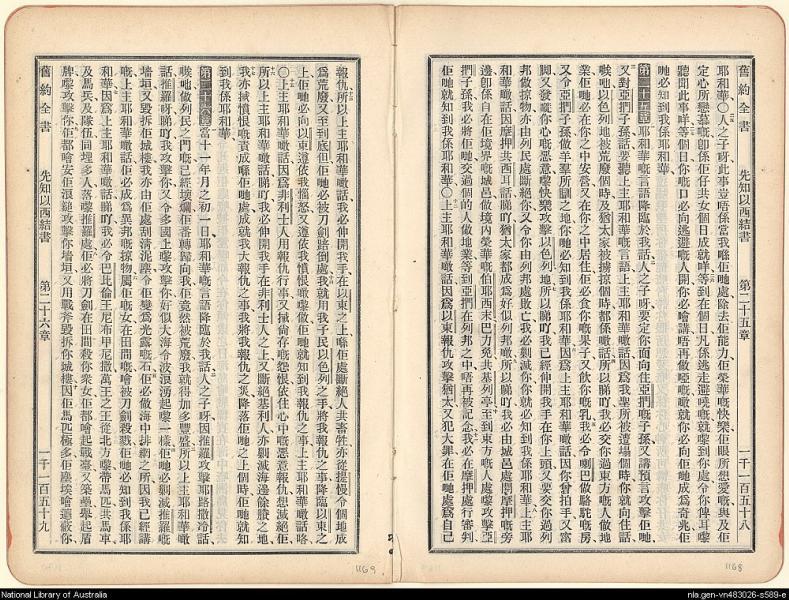 舊約全書 先知以西結書 第二十五章 一千一百五十八
耶和華〇人之子呀此事豈唔係當我喺佢哋處除去佢能力佢榮華嘅快樂佢眼所想愛嘅與及佢
定心所戀慕嘅卽係佢仔共女個日成就咩等到在個日凡係逃走避嘵嘅就嚟到你處令你俾耳嚟
聽聞此事咩等個日你嘅口必向逃避嘅人開你必噲講唔再做啞嘅噉就你必向佢哋成爲奇兆佢
哋必知到我係耶和華
第二十五章 耶和華嘅言語降臨於我話人之子呀要定你面向住亞捫嘅子孫又講預言攻擊佢哋
又對亞捫子孫話要聽上主耶和華嘅言語上主耶和華噉話因爲我聖所被遭塌個時你就向住話
唉吔以色列地被荒廢個時及猶太家被擄掠個時都係噉話所以睇吖我必交你過東方嘅人做地
業佢哋必在你之中安營又在你之中居住佢必食你嘅果子又飲你嘅乳我必令喇巴做駱駝嘅房
又令亞捫子孫做羊羣所瞓之地你哋必知到我係耶和華因爲上主耶和華噉話因你曾拍手又
脚又發嘵你心嘅惡意嚟快樂攻擊以色列地所以睇吖我已經伸開我手在你上頭又要交你過列
邦做掠物亦由列民處斷絕你又令你由列邦處敗亡我必剿滅你你就必知到我係耶和華上主耶
和華噉話因摩押共西耳話睇吖猶太家都成爲好似列邦噉所以睇吖我必由城邑處開摩押嘅旁
邊卽係自在佢境界嘅城邑做境內榮華嘅伯耶西末巴力免共基列亭至到東方嘅人處嚟攻擊亞
捫子孫我必將佢哋交過個的人做地業等到亞捫在列邦之中唔再被記念我必在摩押處行審判
佢哋就知到我係耶和華〇上主耶和華噉話因爲以東報仇攻擊猶太又犯大罪在佢哋處爲自己
1168
報仇所以上主耶和華噉話我必伸開我手在以東之上喺佢處斷絕人共畜牲亦從提慢令個地成
爲荒廢又至到底但佢哋必被刀劍路倒處我就用我子民以色列之手將我報仇之事降臨以東之
上佢哋必向以東遵依我惱怒又遵依我憤恨噉做佢哋就知到我報仇之事上主耶和華噉話咯
〇上主耶和華噉話因爲非利士人用報仇行事又揻尙存嘅怨恨依住心中嘅惡意報仇想滅絕佢
所以上主耶和華噉話睇吖我必伸開我手在非利士人之上又斷絕基利人亦剿滅海邊餘賸之地
我亦揻憤恨嘅責成喺佢哋處成就我大報仇之事我將我報仇之災降落佢哋之上個時佢哋就知
到我係耶和華
第二十六章 當十一年月之初一日耶和華嘅言語降臨於我話人之子呀因推羅攻擊耶路撒冷話
唉吔做列民之門嘅已經壞爛佢番轉歸向我佢竟然被荒廢我就得加多豐盛所以上主耶和華噉
話推羅呀睇吖我攻擊你又令多多國上嚟攻擊你好似大海令波浪湧起嚟一樣佢哋必剿滅推羅嘅
墻垣又毀拆佢城樓我亦由佢處刮清坭塵令佢變爲光露嘅石佢必做海中排網之所因我已經講
嘅上主耶和華噉話佢必成爲異邦嘅掠物屬佢嘅女在田間嘅噲被刀劍殺戮佢哋必知到我係耶
和華因上主耶和華噉話睇吖我必令巴比倫王尼布甲尼撒萬王之王從北方嚟帶馬匹共馬車
及馬兵及隊伍同埋多人落嚟推羅處佢必將刀劍在田間殺你衆女佢都噲起戰臺又築壘舉起盾
牌嚟攻擊你佢都噲安佢滾鎚攻擊你墻垣又用戰斧毀拆你城樓因佢馬匹極多佢塵埃噲遮蔽你
舊約全書 先知以西結書 第二十六章 一千一百五十九
1169
National Library of Australia
nla.gen-vn483026-s589-e